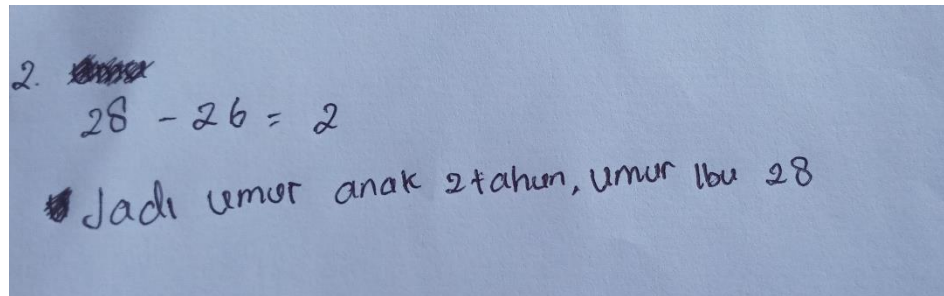 2.
28 - 26 = 2
Jadi umur anak 2 tahun, umur Ibu 28